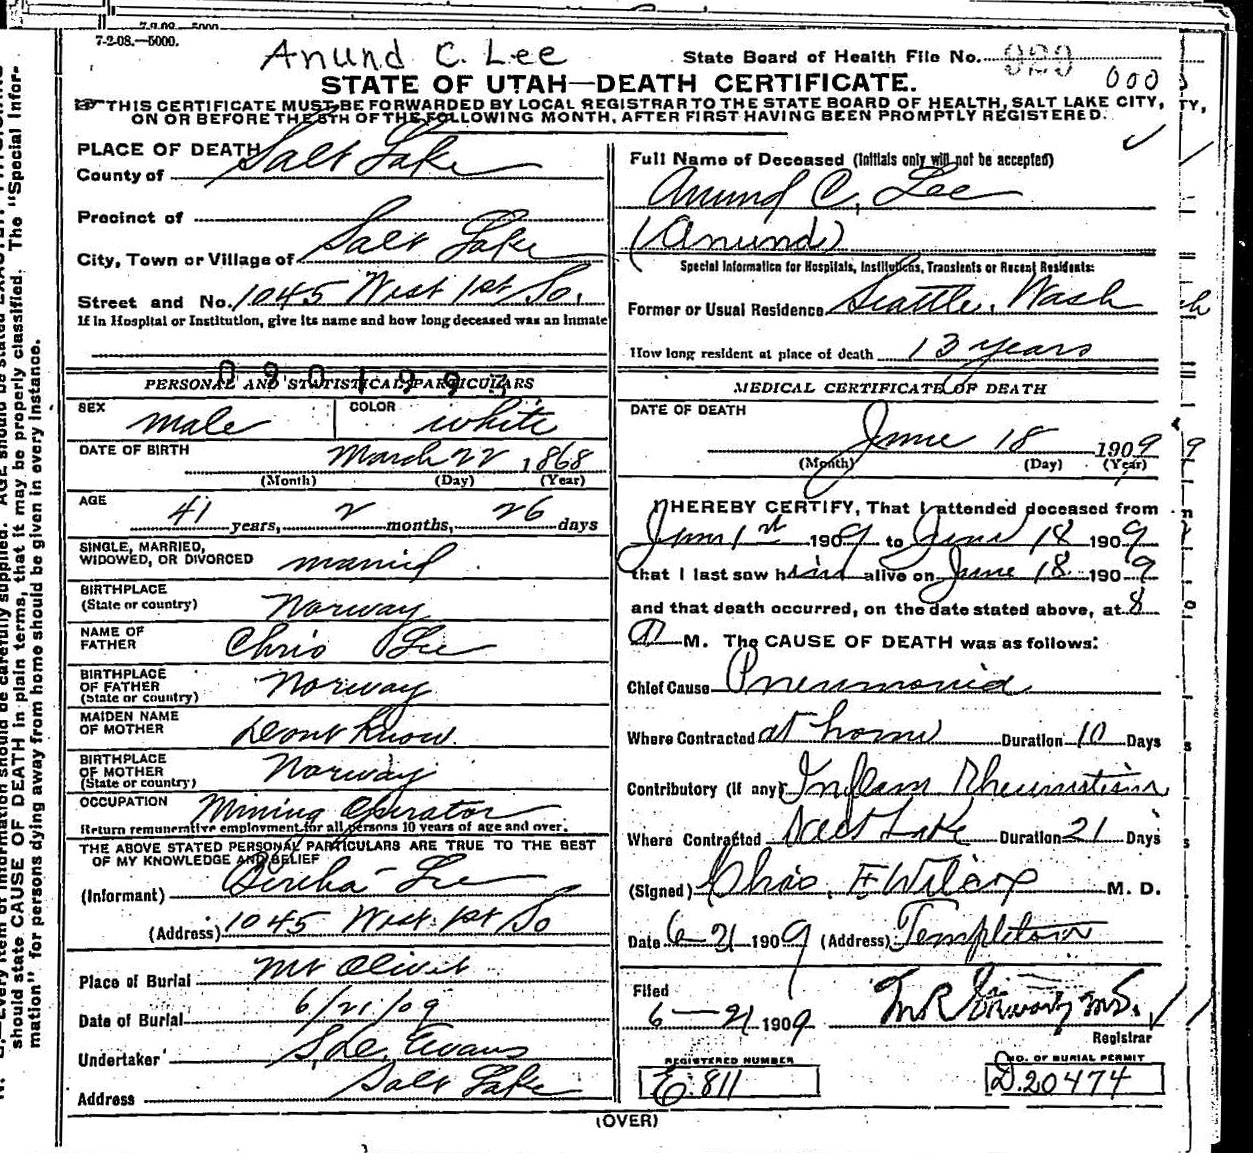 7-2-08.—5000.
Anund C. Lee
State Board of Health File No. 929
000
STATE OF UTAH—DEATH CERTIFICATE.
THIS CERTIFICATE MUST BE FORWARDED BY LOCAL REGISTRAR TO THE STATE BOARD OF HEALTH, SALT LAKE CITY,
ON OR BEFORE THE 5TH OF THE FOLLOWING MONTH, AFTER FIRST HAVING BEEN PROMPTLY REGISTERED.
PLACE OF DEATH
County of Salt Lake
Precinct of
City, Town or Village of Salt Lake
Street and No. 1045 West 1st So.
If in Hospital or Institution, give its name and how long deceased was an Inmate
PERSONAL AND STATISTICAL PARTICULARS
SEX male COLOR white
DATE OF BIRTH March 22, 1868
(Month) (Day) (Year)
AGE 41 years, 2 months, 26 days
SINGLE, MARRIED,
WIDOWED, OR DIVORCED married
BIRTHPLACE
(State or country) Norway
NAME OF
FATHER Chris Lee
BIRTHPLACE
OF FATHER
(State or country) Norway
MAIDEN NAME
OF MOTHER Dont Know
BIRTHPLACE
OF MOTHER
(State or country) Norway
OCCUPATION Mining Operator
Return remunerative employment for all persons 10 years of age and over.
THE ABOVE STATED PERSONAL PARTICULARS ARE TRUE TO THE BEST
OF MY KNOWLEDGE AND BELIEF
(Informant) Bertha Lee
(Address) 1045 West 1st So
Place of Burial Mt Olivet
Date of Burial 6/21/09
Undertaker Evans
Address Salt Lake
Full Name of Deceased (Initials only will not be accepted)
Anund C. Lee
(Anund)
Special Information for Hospitals, Institutions, Transients or Recent Residents:
Former or Usual Residence Seattle, Wash
How long resident at place of death 13 years
MEDICAL CERTIFICATE OF DEATH
DATE OF DEATH
June 18 1909
(Month) (Day) (Year)
I HEREBY CERTIFY, That I attended deceased from
June 1st 1909 to June 18 1909
that I last saw him alive on June 18 1909
and that death occurred, on the date stated above, at 8
a M. The CAUSE OF DEATH was as follows:
Chief Cause Pneumonia
Where Contracted at home Duration 10 Days
Contributory (If any) Inflam Rheumatism
Where Contracted Salt Lake Duration 21 Days
(Signed) Chas. F Wilcox M. D.
Date 6-21 1909 (Address) Templeton
Filed
6-21 1909
Registrar
REGISTERED NUMBER
E.811
NO. OF BURIAL PERMIT
D.20474
(OVER)
should state CAUSE OF DEATH in plain terms, that it may be properly classified. The "Special Infor-
mation" for persons dying away from home should be given in every instance.